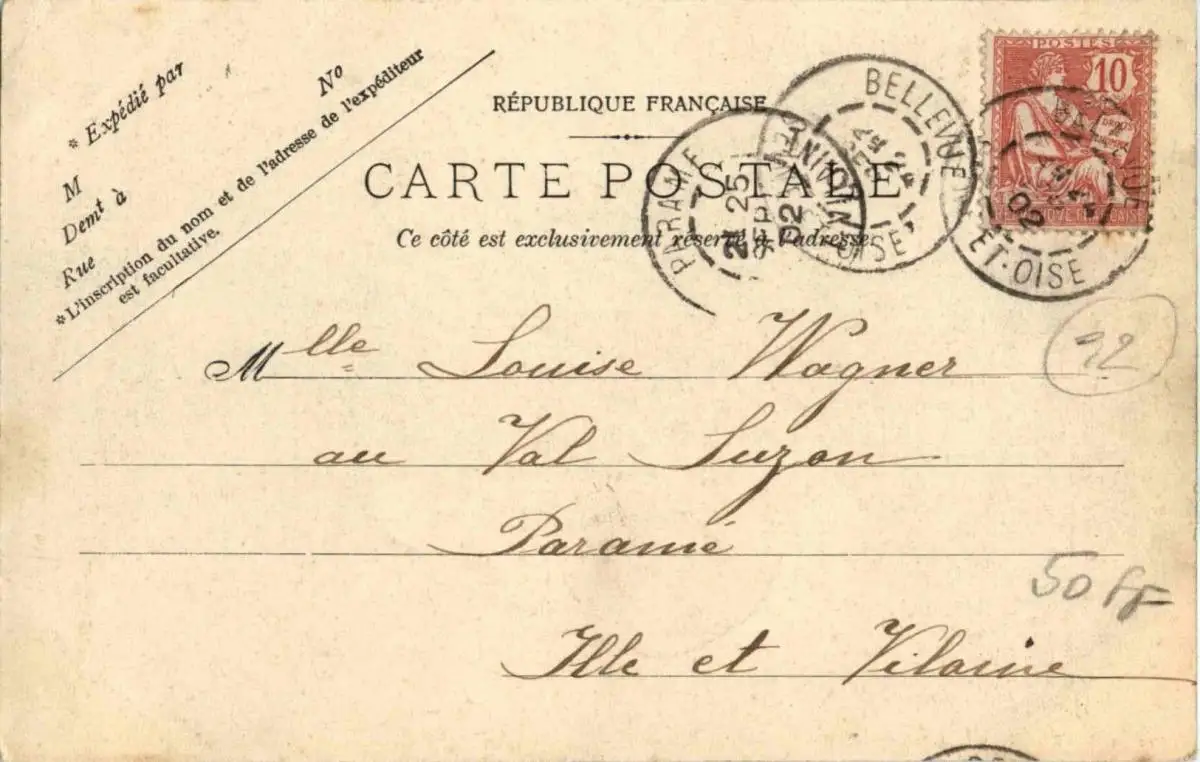 * Expédié par
M No
Demt à
Rue
* L'inscription du nom et de l'adresse de l'expéditeur
est facultative.
RÉPUBLIQUE FRANÇAISE
CARTE POSTALE
Ce côté est exclusivement réservé à l'adresse
PARAMÉ
21 25
SEPT
02
ILLE-ET-VILAINE
BELLEVUE
ET-OISE
POSTES
10
BELLEVUE
02
ET-OISE
Mlle Louise Wagner
au Val Suzon
Paramé
Ille et Vilaine
92
50 fr